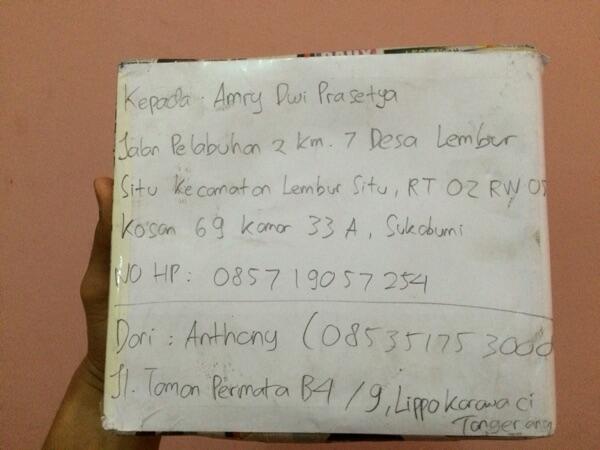 Kepada : Amry Dwi Prasetya
Jalan Pelabuhan 2 km. 7 Desa Lembur
Situ Kecamatan Lembur Situ, RT 02 RW
Kosan 69 Kamar 33 A, Sukabumi
NO HP : 085719057254
Dari : Anthony (085351753000
Jl. Taman Permata B4 / 9, Lippo Karawaci
Tangerang